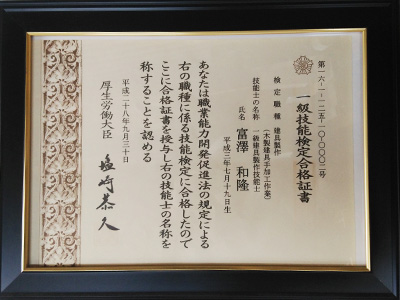 第一六-一-一二五-一〇-〇〇〇二号
一級技能検定合格証書
検定職種 建具製作
(木製建具手加工作業)
技能士の名称 一級建具製作技能士
氏名 富澤 和隆
平成三年七月十九日生
あなたは職業能力開発促進法の規定による
右の職種に係る技能検定に合格したので
ここに合格証書を授与し右の技能士の名称を
称することを認める
平成二十八年九月三十日
厚生労働大臣 塩崎恭久